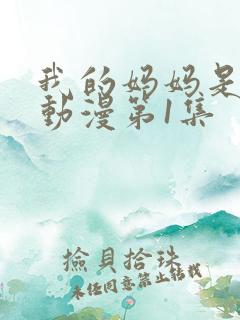 我的妈妈是
動漫第1集
撿貝拾珠
未经同意禁止转载